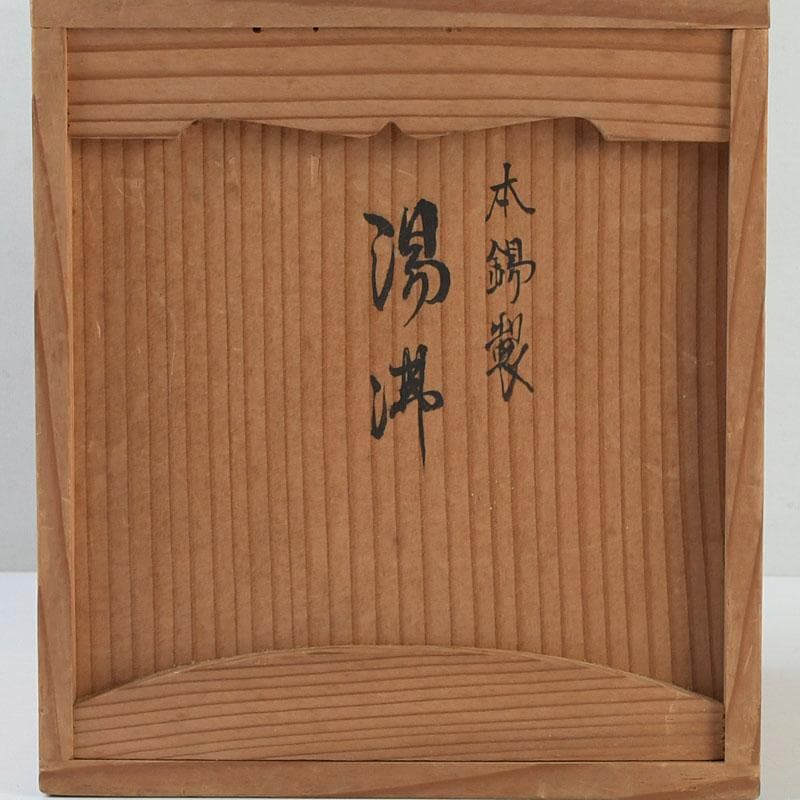 本錫製
湯沸